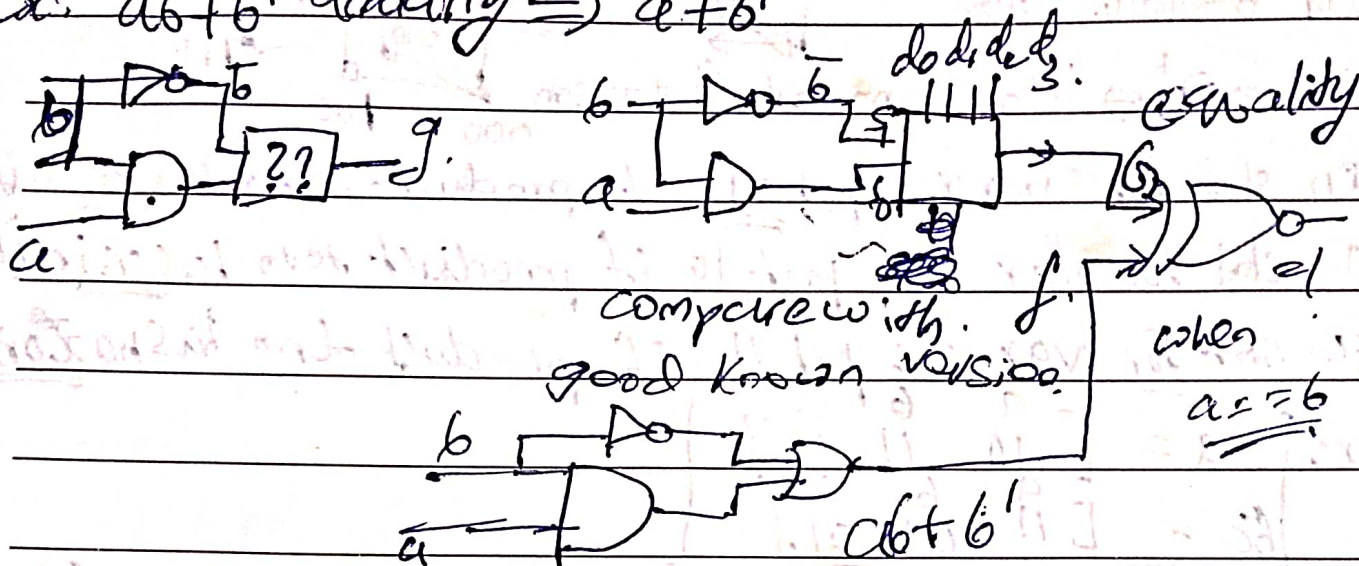 ab + b' ⇒ a + b'
b̄
b
??
g.
a
b
b̄
d0 d1 d2 d3.
equality
a
S1
S0
G
=1
compare with. f.
good known version
when
a == b
b
a
ab + b'